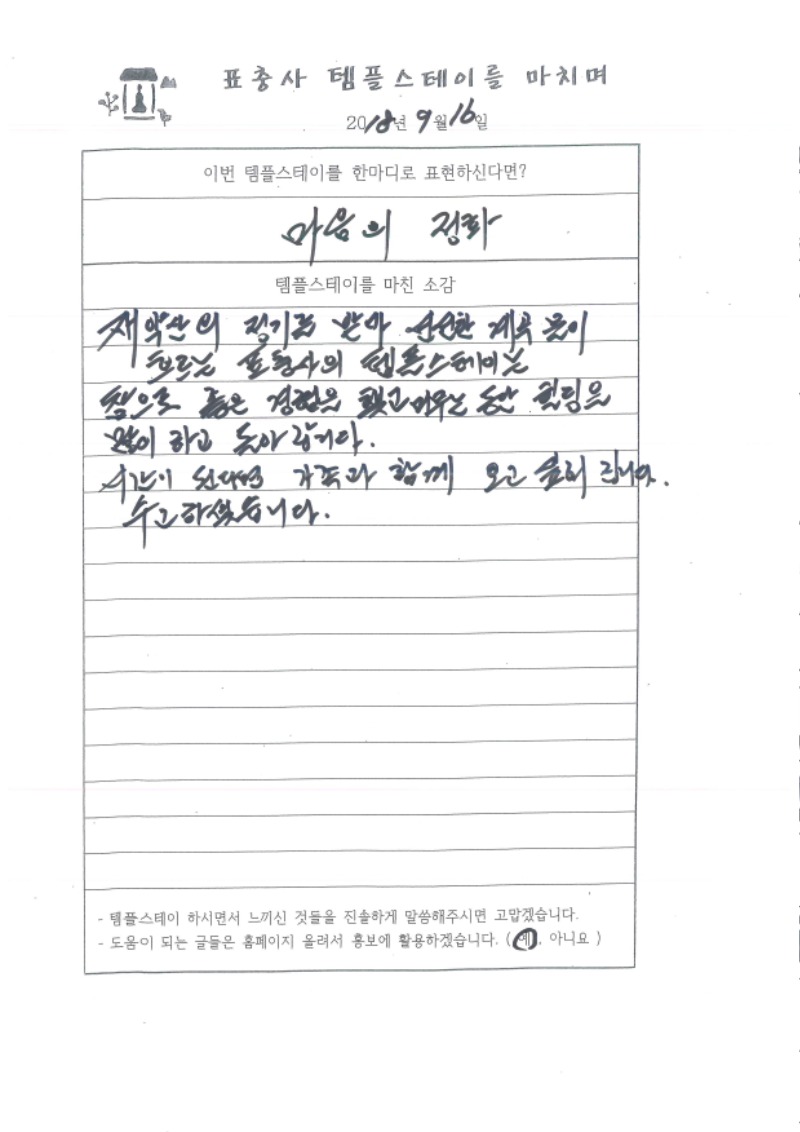 표충사 템플스테이를 마치며
2018년 9월 16일
이번 템플스테이를 한마디로 표현하신다면?
마음의 정화
템플스테이를 마친 소감
재약산의 정기를 받아 계곡 물이
흐르는 표충사의 템플스테이는
참으로 좋은 경험을 했고 머무는 동안 힐링을
많이 하고 돌아 갑니다.
시간이 된다면 가족과 함께 오고 싶어 집니다.
수고하셨습니다.
- 템플스테이 하시면서 느끼신 것들을 진솔하게 말씀해주시면 고맙겠습니다.
- 도움이 되는 글들은 홈페이지 올려서 홍보에 활용하겠습니다. (예, 아니요 )